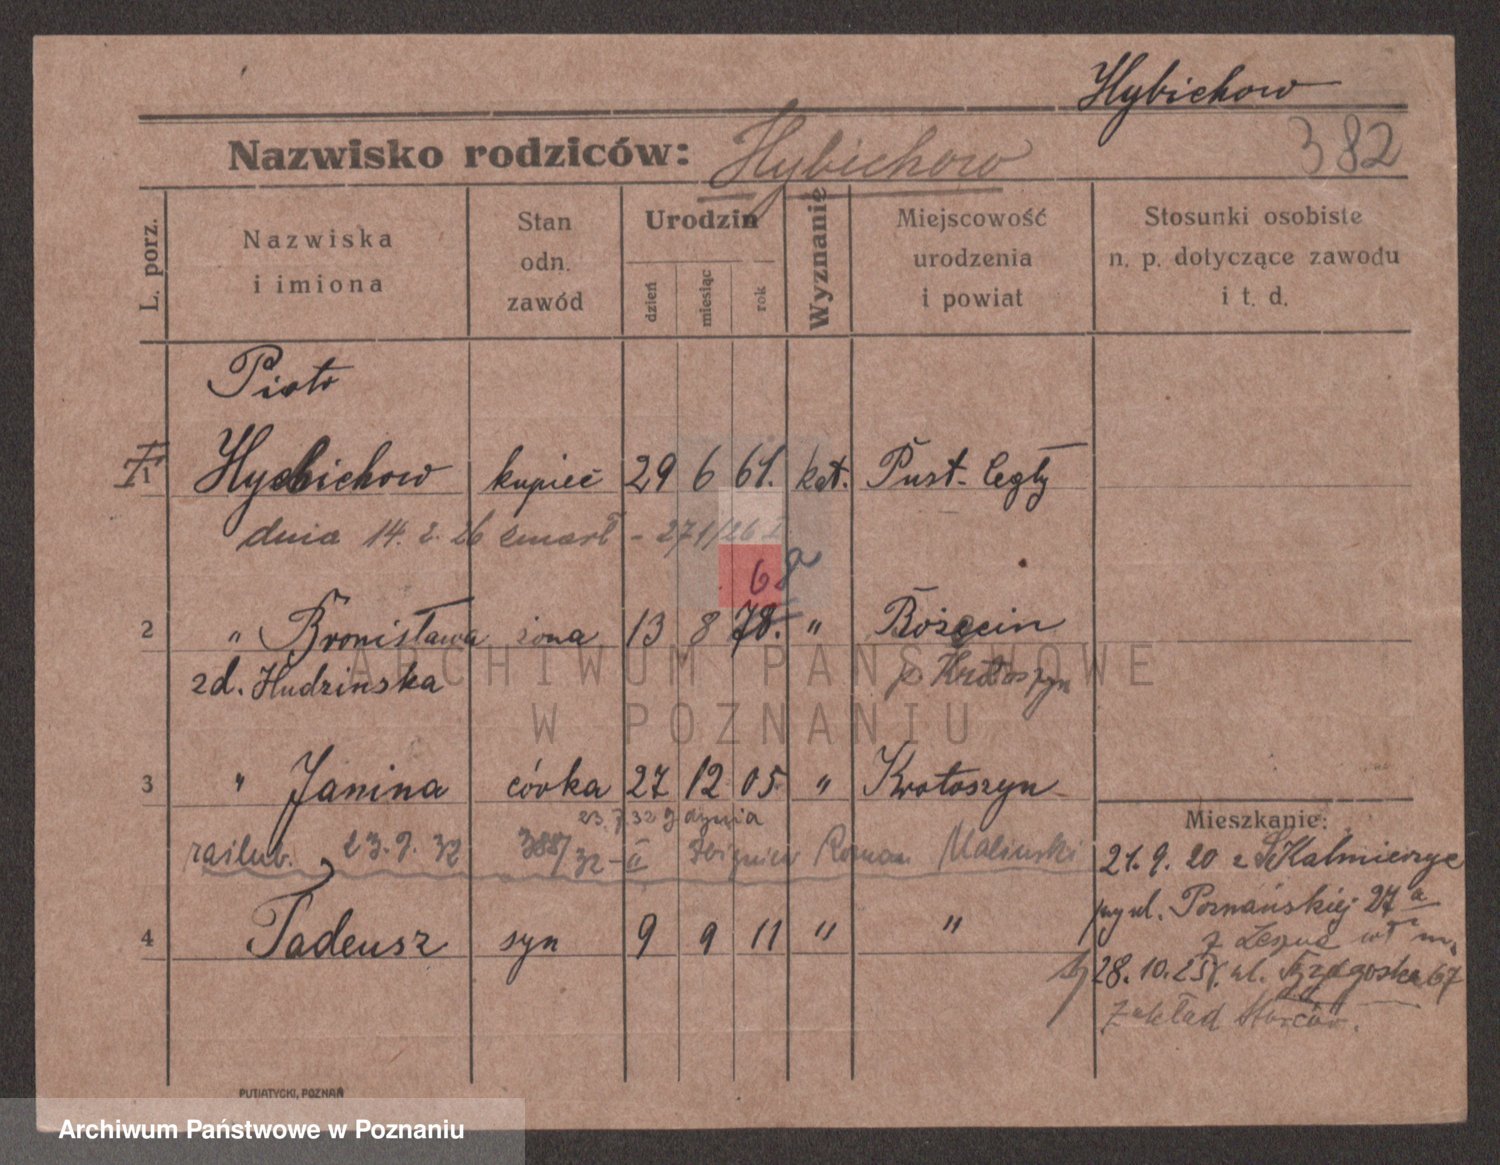 Hybichow
Nazwisko rodziców: Hybichow
382
L. porz.
Nazwiska i imiona
Stan odn. zawód
Urodzin
dzień
miesiąc
rok
Wyznanie
Miejscowość urodzenia i powiat
Stosunki osobiste n. p. dotyczące zawodu i t. d.
Piotr
1 Hybichow kupiec 29 6 61. kat. Pust.
dnia 14. 2. 26 zmarł - 271/26 I
68
2 " Bronisława żona 13 8 78. "
zd. Hudzinska Krotoszyn
3 " Janina córka 27 12 05 " Krotoszyn
23. 7. 32 Gdynia
zaślub. 23. 7. 32 388/32-II Zbigniew Roman Malinski
4 Tadeusz syn 9 9 11 " "
Mieszkanie:
21. 9. 20 z
przy ul. Poznańskiej 27a
z Leszna
28. 10. 25 ul. 67
zakład
PUTIATYCKI, POZNAŃ
ARCHIWUM PAŃSTWOWE
W POZNANIU
Archiwum Państwowe w Poznaniu